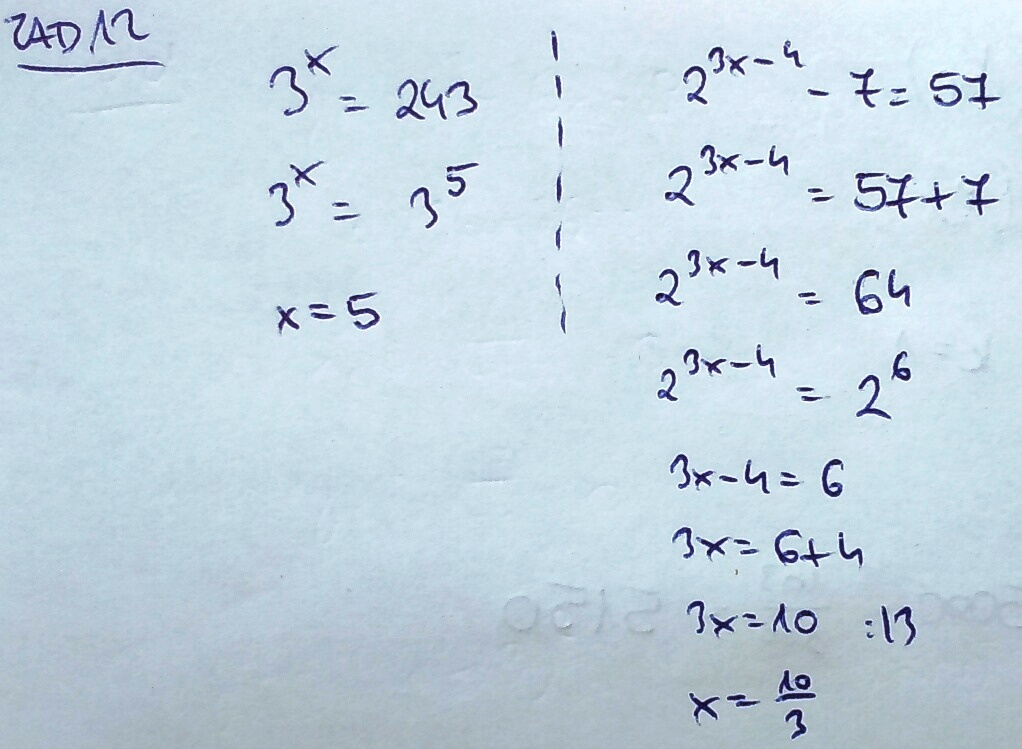 ZAD 12
3^x = 243
3^x = 3^5
x = 5
2^{3x-4} - 7 = 57
2^{3x-4} = 57 + 7
2^{3x-4} = 64
2^{3x-4} = 2^6
3x - 4 = 6
3x = 6 + 4
3x = 10 :|3
x = \frac{10}{3}